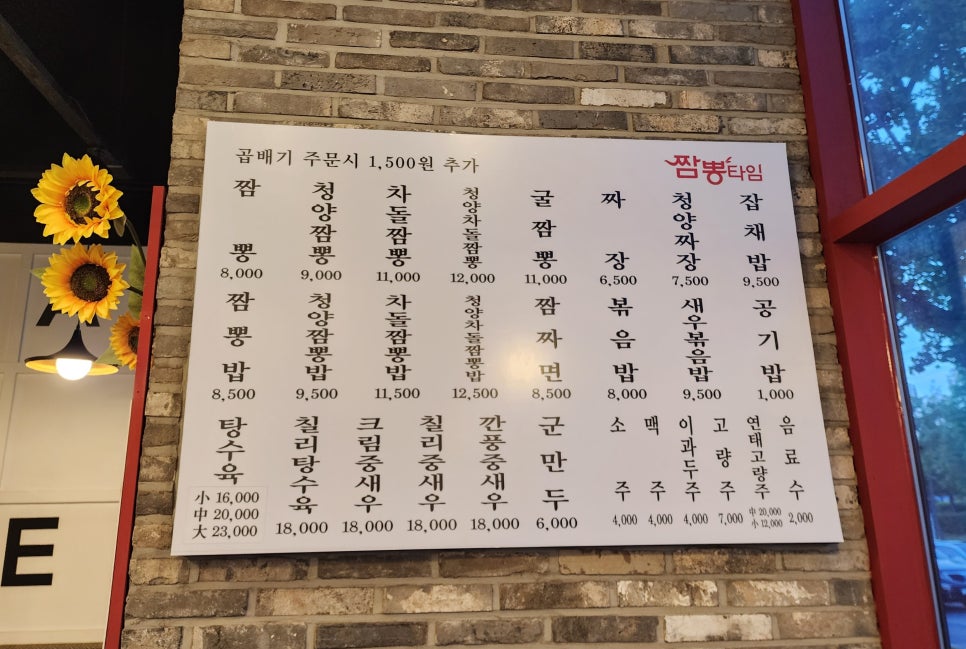 곱배기 주문시 1,500원 추가
짬뽕타임
짬뽕 청양짬뽕 차돌짬뽕 청양차돌짬뽕 굴짬뽕 짜장 청양짜장 잡채밥
8,000 9,000 11,000 12,000 11,000 6,500 7,500 9,500
짬뽕밥 청양짬뽕밥 차돌짬뽕밥 청양차돌짬뽕밥 짬짜면 볶음밥 새우볶음밥 공기밥
8,500 9,500 11,500 12,500 8,500 8,000 9,500 1,000
탕수육 칠리탕수육 크림중새우 칠리중새우 깐풍중새우 군만두 소주 맥주 이과두주 고량주 연태고량주 음료수
小 16,000
中 20,000
大 23,000
18,000 18,000 18,000 18,000 6,000 4,000 4,000 4,000 7,000 中 20,000 小 12,000 2,000
E